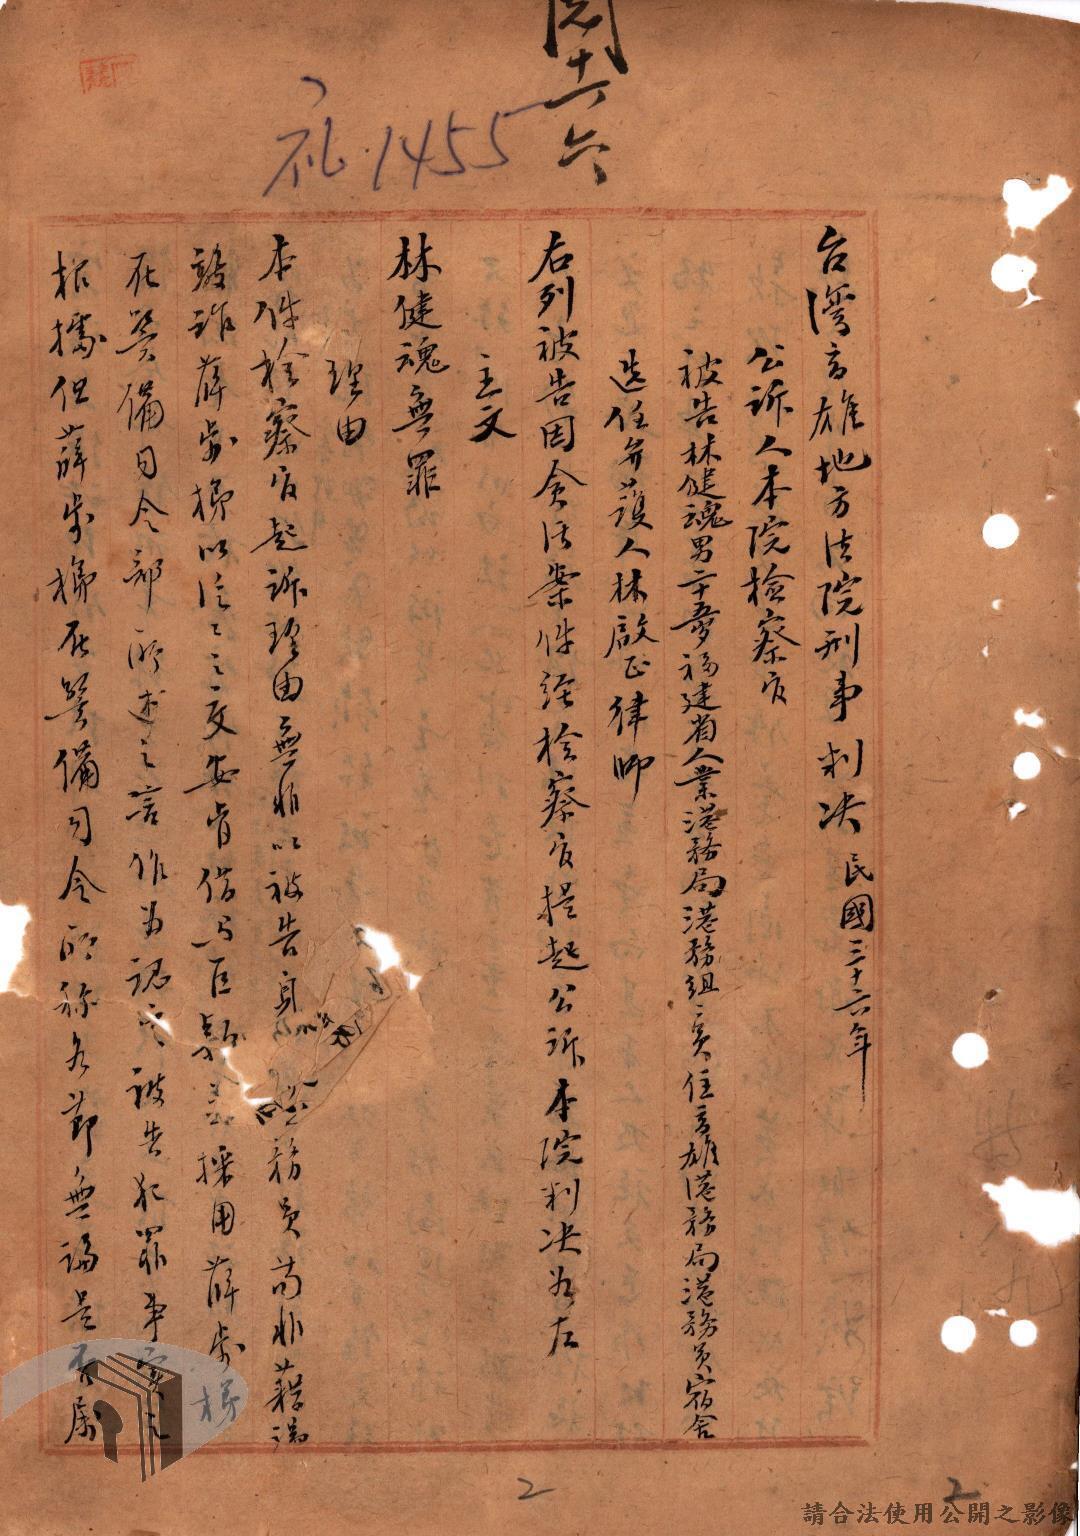 礼.1455
台灣高雄地方法院刑事判决 民國三十六年
公訴人本院檢察官
被告林健魂男二十五歲福建省人業港務局港務組 員住高雄港務局港務員宿舍
選任弁護人林啟正律師
右列被告因貪污案件経檢察官提起公訴本院判决如左
主文
林健魂無罪
理由
本件檢察官起訴理由無非以被告身 港務員苟非藉端
設詐薛步梯以泛泛之交安肯借与巨 採用薛步梯
在警備司令部所述之言作為認定被告犯罪事實之
根據但薛步梯在警備司令所称各節無論是否屬
2
2
請合法使用公開之影像